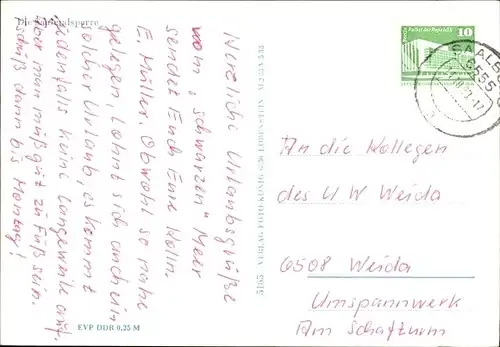 Die Saaletalsperre
Herzliche Urlaubsgrüße
vom „schwarzen" Meer
sendet Euch Eure Kolln.
E. Müller. Obwohl so nahe
gelegen, lohnt sich auch ein
solcher Urlaub, es kommt
jedenfalls keine Langeweile auf.
Aber man muß gut zu Fuß sein.
Tschüß dann bis Montag!
EVP DDR 0,25 M
5165 VERLAG FOTO-KÖNIG 6850 LOBENSTEIN
10
SAALB
6555
An die Kollegen
des UW Weida
6508 Weida
Umspannwerk
Am Schafturm